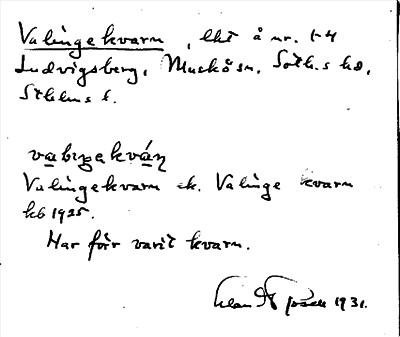 Valinge kvarn, lht å nr. 1-4
Ludvigsberg, Muskö sn, Soth.s hd,
Sthlms l.
Valinge kvarn ek. Valinge kvarn
kb 1925.
Har förr varit kvarn.
1931.